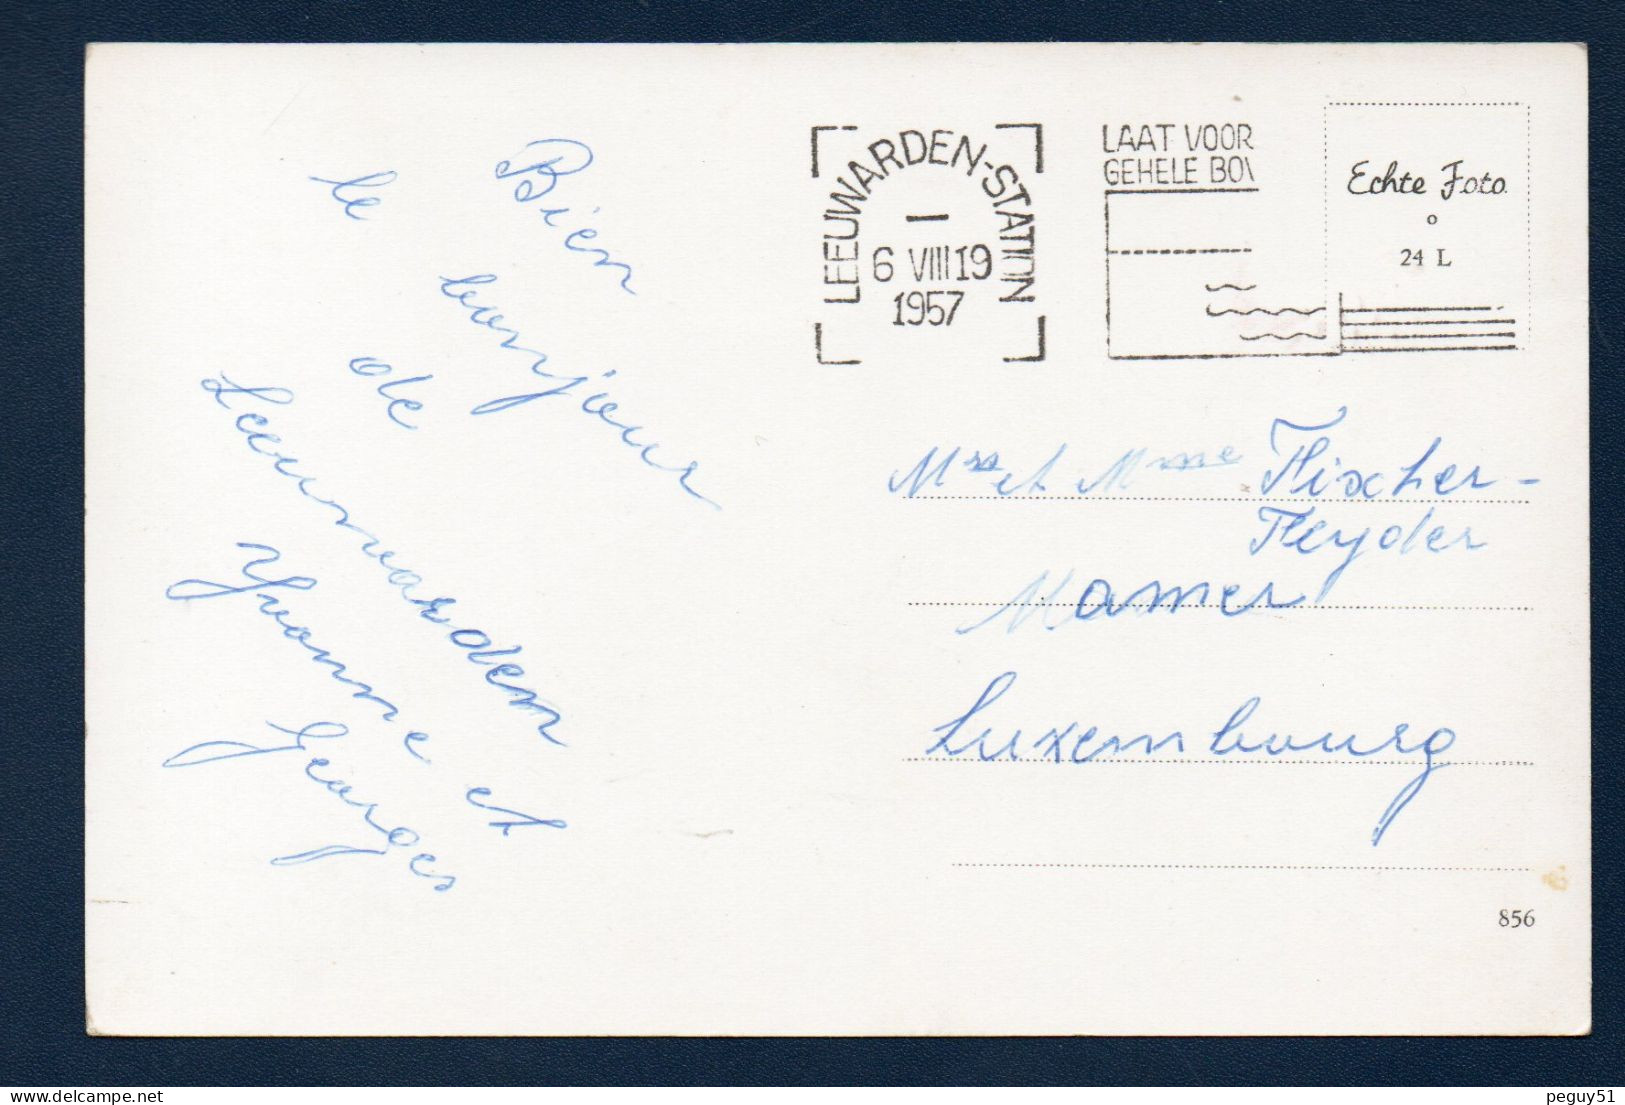 Bien
le bonjour
de
Leeuwarden
Yvonne et
Georges
LEEUWARDEN-STATION
6 VIII 19
1957
LAAT VOOR
GEHELE BOV
Echte Foto
24 L
Mr et Mme Fischer-
Feyder
Mamer
Luxembourg
856
delcampe.net
peguy51